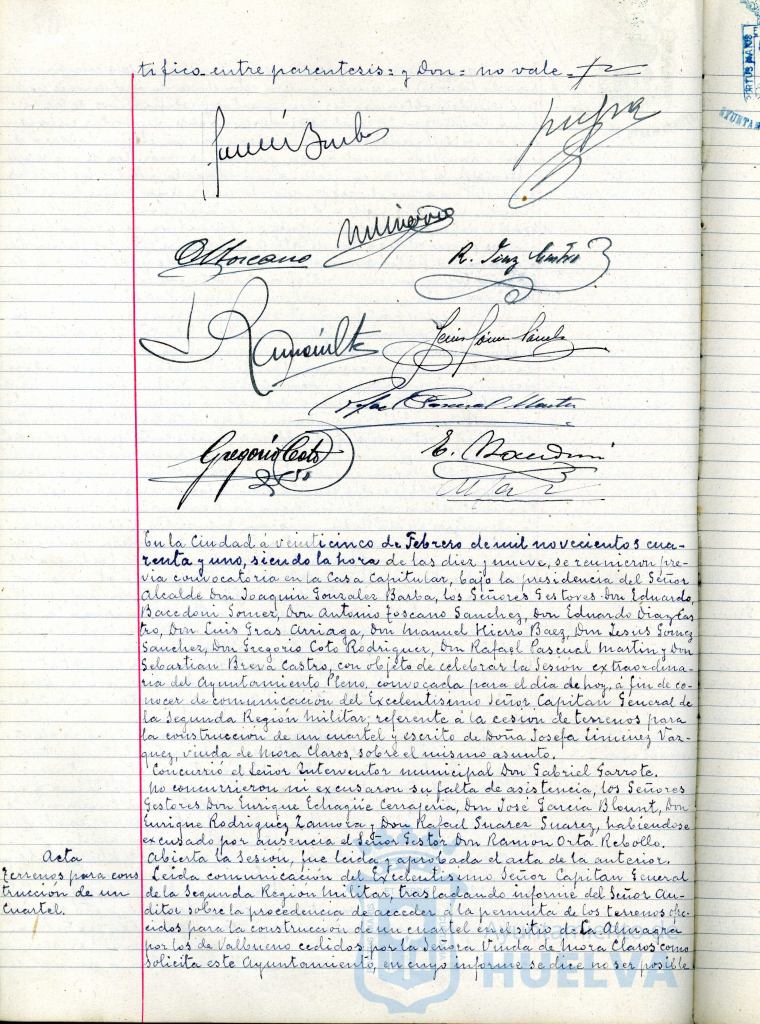 tifico-entre parentesis= y Don= no vale=
Gregorio Coto
Rafael Pascual Martin
En la Ciudad á veinticinco de Febrero de mil novecientos cua-
renta y uno, siendo la hora de las diez y nueve, se reunieron pré-
via convocatoria en la Casa Capitular, bajo la presidencia del Señor
Alcalde Don Joaquin Gonzalez Barba, los Señores Gestores Don Eduardo
Bacedoni Gomez, Don Antonio Toscano Sanchez, Don Eduardo Diaz Cas-
tro, Don Luis Gras Arriaga, Don Manuel Hierro Baez, Don Jesus Gomez
Sanchez, Don Gregorio Coto Rodriguez, Don Rafael Pascual Martin y Don
Sebastian Breva Castro, con objeto de celebrar la Sesion extraordina-
ria del Ayuntamiento Pleno, convocada para el dia de hoy, á fin de co-
nocer de comunicación del Excelentisimo Señor Capitan General de
la Segunda Región Militar, referente á la cesion de terrenos para
la construccion de un cuartel y escrito de Doña Josefa Jimenez Vaz-
quez, viuda de Mora Claros, sobre el mismo asunto.
Concurrió el Señor Interventor municipal Don Gabriel Garrote.
No concurrieron ni excusaron su falta de asistencia, los Señores
Gestores Don Enrique Echagüe Cerrageria, Don José Garcia Blount, Don
Enrique Rodriguez Zamora y Don Rafael Suarez Suarez, habiendose
excusado por ausencia el Señor Gestor Don Ramon Orta Rebollo.
Abierta la Sesion, fue leida y aprobada el acta de la anterior.
Acta
terrenos para cons
trucción de un
Cuartel.
Leida comunicación del Excelentisimo Señor Capitan General
de la Segunda Región Militar, trasladando informe del Señor Au-
ditor sobre la procedencia de acceder á la permuta de los terrenos ofre-
cidos para la construccion de un cuartel en el sitio de La Almagra
por los de Valbueno cedidos por la Señora Viuda de Mora Claros como
solicita este Ayuntamiento, en cuyo informe se dice no ser posible
HUELVA